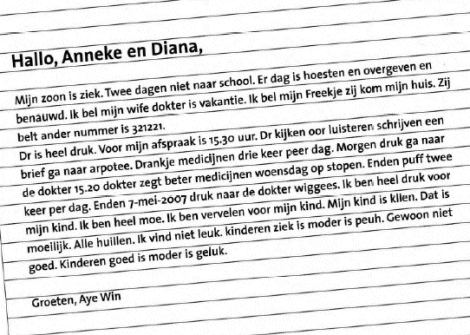 Hallo, Anneke en Diana,
Mijn zoon is ziek. Twee dagen niet naar school. Er dag is hoesten en overgeven en
benauwd. Ik bel mijn wife dokter is vakantie. Ik bel mijn Freekje zij kom mijn huis. Zij
belt ander nummer is 321221.
Dr is heel druk. Voor mijn afspraak is 15.30 uur. Dr kijken oor luisteren schrijven een
brief ga naar arpotee. Drankje medicijnen drie keer peer dag. Morgen druk ga naar
de dokter 15.20 dokter zegt beter medicijnen woensdag op stopen. Enden puff twee
keer per dag. Enden 7-mei-2007 druk naar de dokter wiggees. Ik ben heel druk voor
mijn kind. Ik ben heel moe. Ik ben vervelen voor mijn kind. Mijn kind is klien. Dat is
moeilijk. Alle huillen. Ik vind niet leuk. kinderen ziek is moder is peuh. Gewoon niet
goed. Kinderen goed is moder is geluk.
Groeten, Aye Win